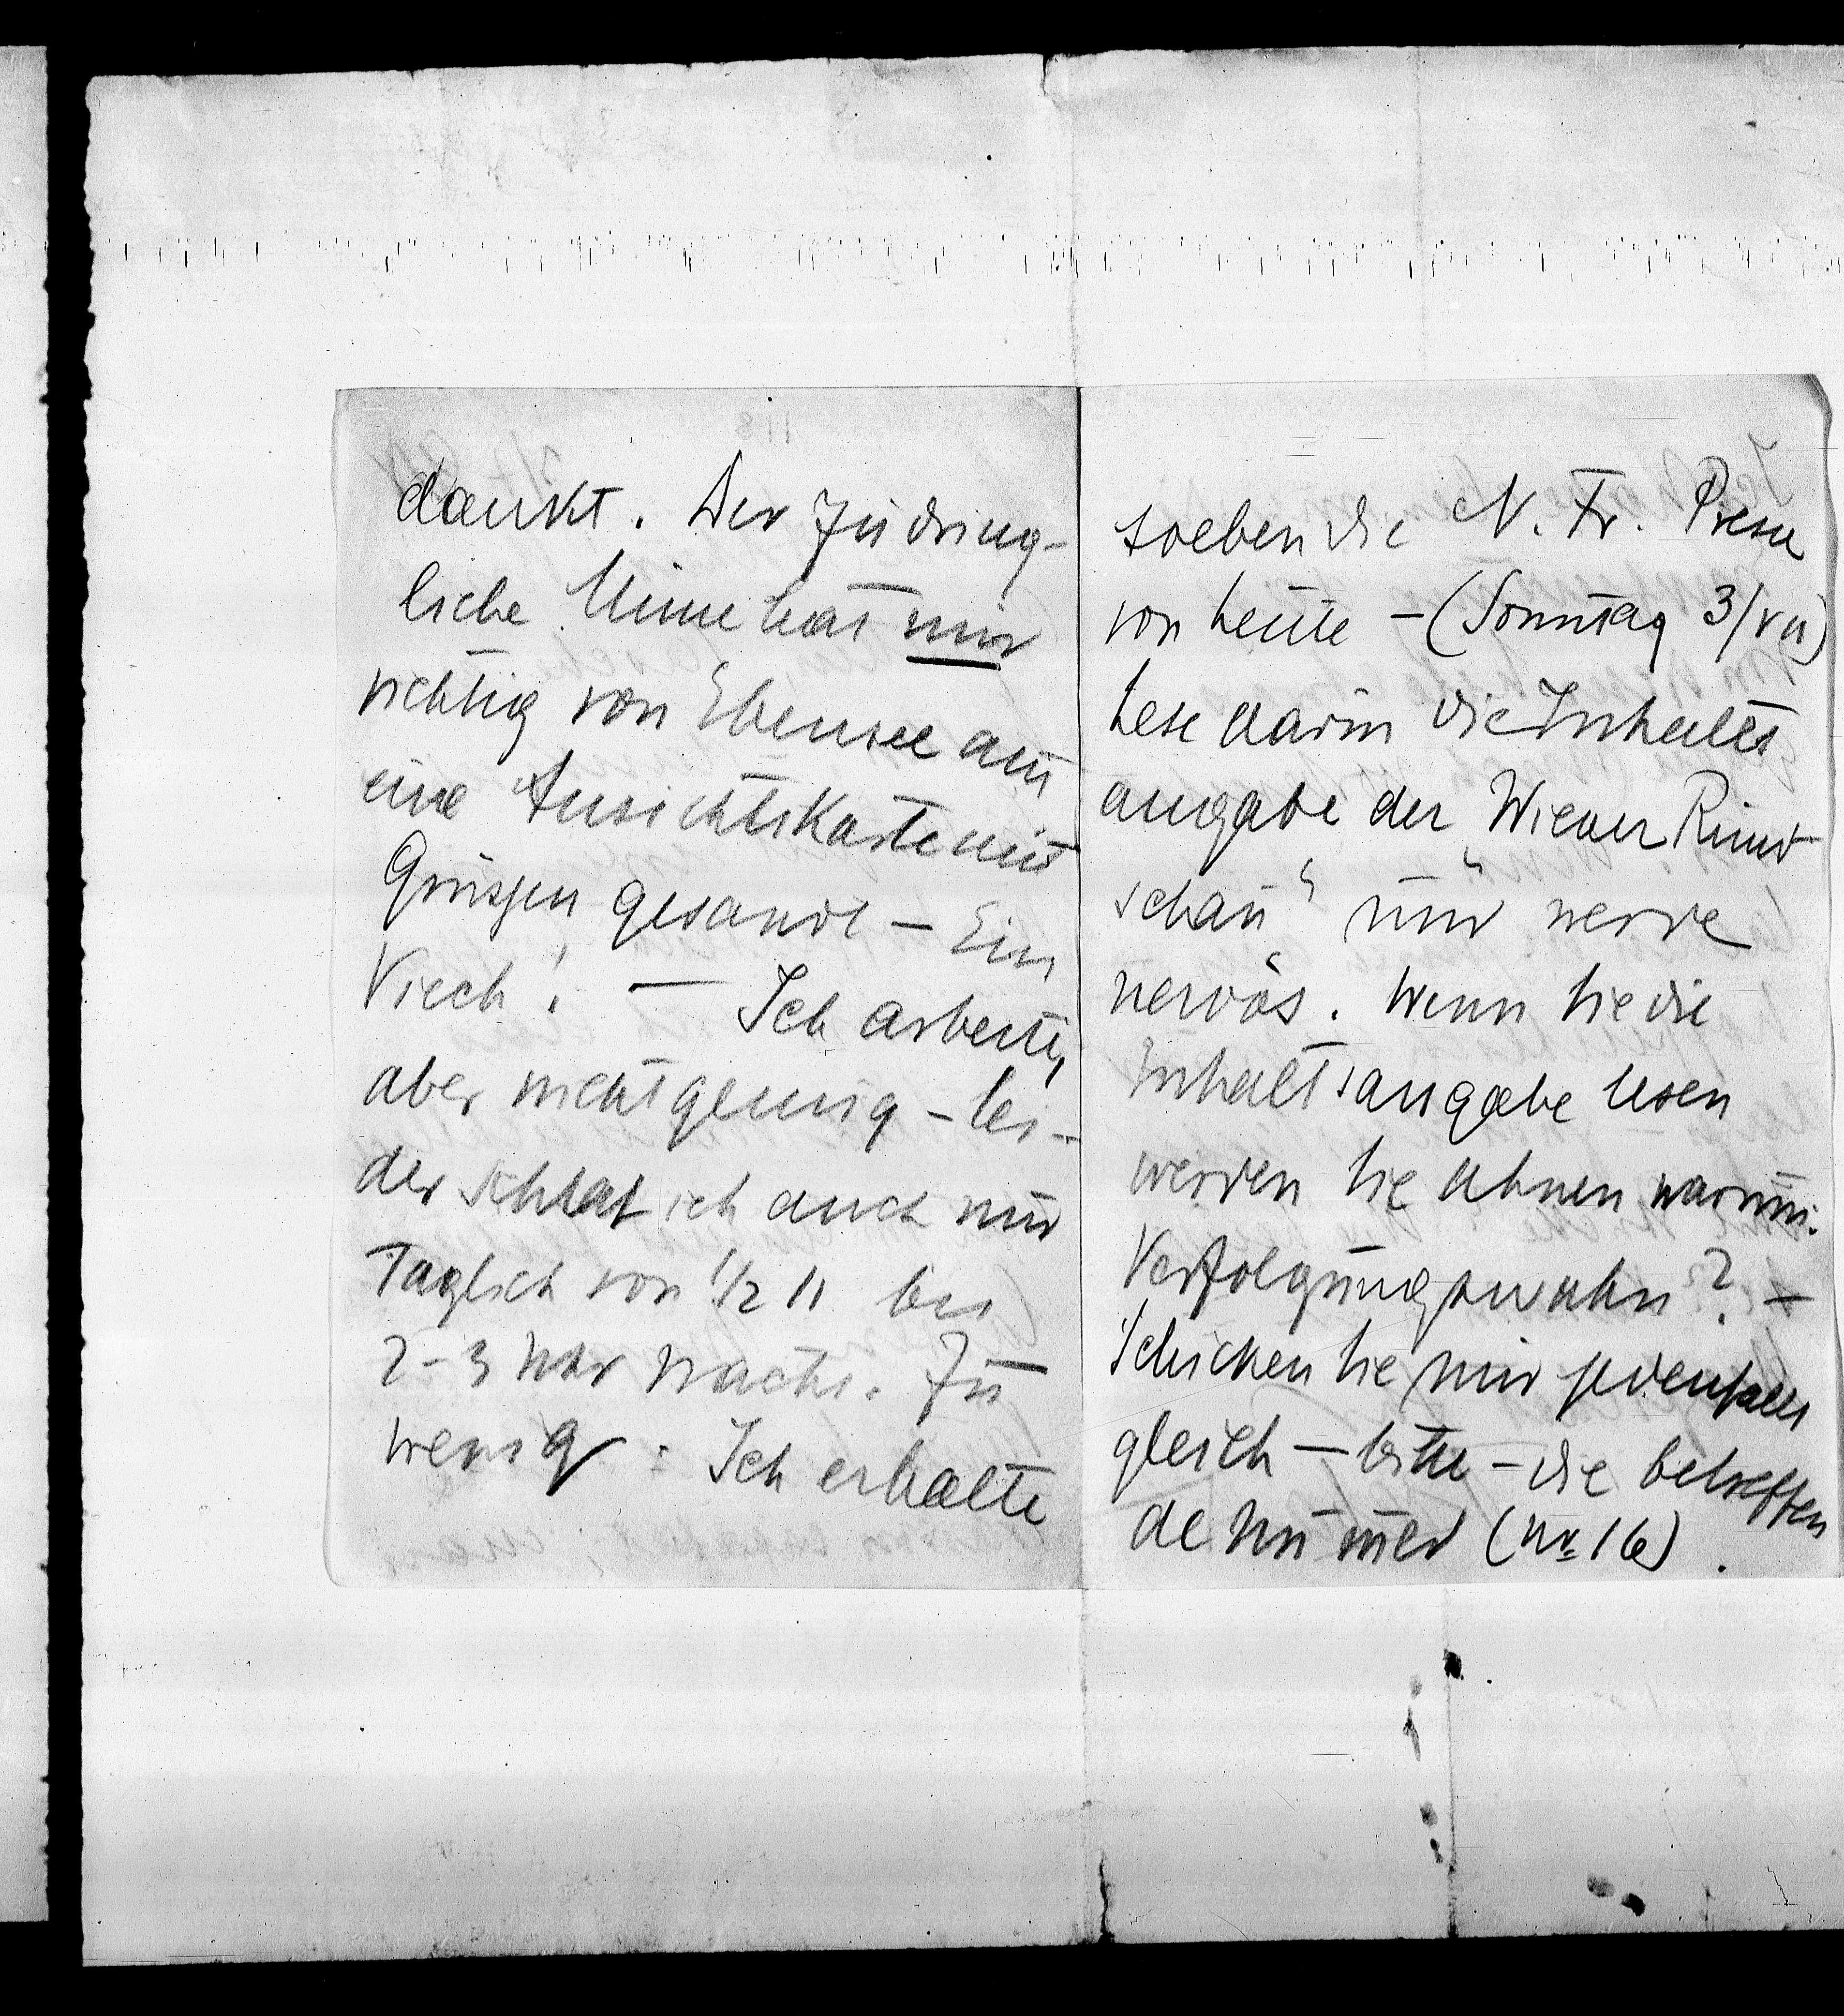 dankt. Der zudring-
liche Mime hat mir
richtig von Ebensee aus
eine Ansichtskarte mit
Grüssen gesandt – Ein
Viech! – Ich arbeite,
aber nicht genug – lei-
der schlaf ich auch nur
täglich von ½ 11 bis
2–3 Uhr Nachts. Zu
wenig: Ich erhalte
soeben die N. Fr. Presse
von heute – (Sonntag 3/VII)
lese darin die Inhalts
angabe der „Wiener Rund
schau“ und werde
nervös. Wenn Sie die
Inhaltsangabe lesen
werden Sie ahnen warum.
Verfolgungswahn? –
Schicken Sie mir jedenfalls
gleich – bitte – die betreffen
de Nummer (No 16).